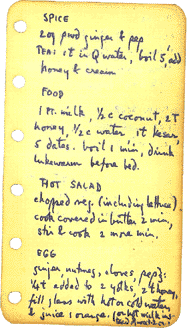 SPICE
2oz pwd ginger & pep
Teas: it in Q water, boil 5', add
honey & cream
FOOD
1 Pt. milk, ½ c coconut, 2T
honey, ½ c water it kesar,
5 dates. boil 1 min, drink
lukewarm before bed.
HOT SALAD
chopped veg. (including lettuce)
cook covered in butter 2 min,
stir & cook 2 more min.
EGG
ginger, nutmeg, cloves, pepd:
¼t added to 2 yolks, 2t honey,
fill glass with hot or cold water
& juice 1 orange. (or hot milk in